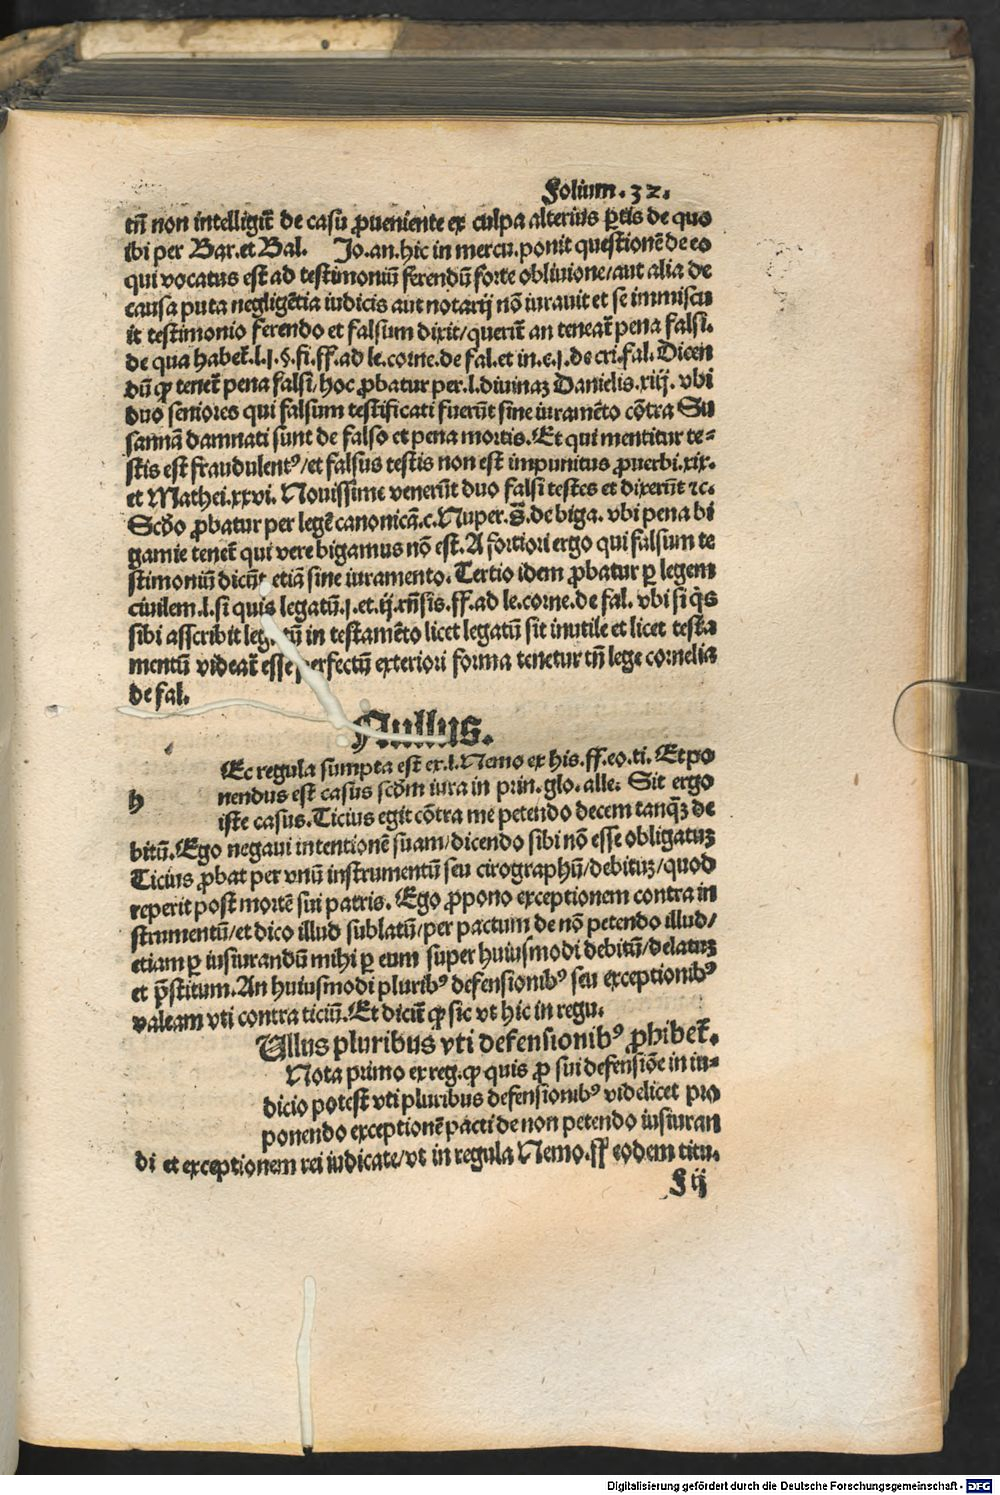 Folium.32.
tñ non intelligit̃ de casu ꝓueniente ex culpa alterius ꝑtis de quo
ibi per Bar.et Bal. Jo.an.hic in mercu.ponit questionẽ de eo
qui vocatus est ad testimoniũ ferendũ forte obliuione/aut alia de
causa puta negligẽtia iudicis aut notarij nõ iurauit et se immiscu
it testimonio ferendo et falsum dixit/querit̃ an teneat̃ pena falsi.
de qua habet̃.l.j.§.fi.ff.ad le.corne.de fal.et in.c.j.de cri.fal. Dicen
dũ ꝙ tenet̃ pena falsi/hoc ꝓbatur per.l.diuinaꝫ Danielis.xiij. vbi
duo seniores qui falsum testificati fuerũt sine iuramẽto cõtra Su
sannã damnati sunt de falso et pena mortis.Et qui mentitur te⸗
stis est fraudulentꝰ/et falsus testis non est impunitus ꝓuerbi.xix.
et Mathei.xxvi. Nouissime venerũt duo falsi testes et dixerũt ⁊c.
Scďo ꝓbatur per legẽ canonicã.c.Nuper. de biga. vbi pena bi
gamie tenet̃ qui vere bigamus nõ est.A fortiori ergo qui falsum te
stimoniũ dicũt etiã sine iuramento.Tertio idem ꝓbatur ꝑ legem
ciuilem.l.si quis legatũ.j.et.ij.rñsis.ff.ad le.corne.de fal. vbi si q̃s
sibi asscribit legatũ in testamẽto licet legatũ sit inutile et licet testa
mentũ videat̃ esse perfectũ exteriori forma tenetur tñ lege cornelia
de fal.
Nullus.
h
Ec regula sumpta est ex.l.Nemo ex his.ff.eo.ti. Et po
nendus est casus scďm iura in prin.glo.alle. Sit ergo
iste casus.Ticius egit cõtra me petendo decem tanqꝫ de
bitũ.Ego negaui intentionẽ suam/dicendo sibi nõ esse obligatuꝫ
Ticius ꝓbat per vnũ instrumentũ seu cirographũ/debituꝫ/quod
reperit post mortẽ sui patris. Ego ꝓpono exceptionem contra in
strumentũ/et dico illud sublatũ/per pactum de nõ petendo illud/
etiam ꝑ iusiurandũ mihi ꝑ eum super huiusmodi debitũ/delatuꝫ
et p̃stitum.An huiusmodi pluribꝰ defensionibꝰ seu exceptionibꝰ
valeam vti contra ticiũ.Et dicit̃ ꝙ sic vt hic in regu.
Ullus pluribus vti defensionibꝰ ꝓhibet̃.
Nota primo ex reg.ꝙ quis ꝓ sui defensiõe in iu⸗
dicio potest vti pluribus defensionibꝰ videlicet pro
ponendo exceptionẽ pacti de non petendo iusiuran
di et exceptionem rei iudicate/vt in regula Nemo.ff eodem titu.
F ij
Digitalisierung gefördert durch die Deutsche Forschungsgemeinschaft - DFG